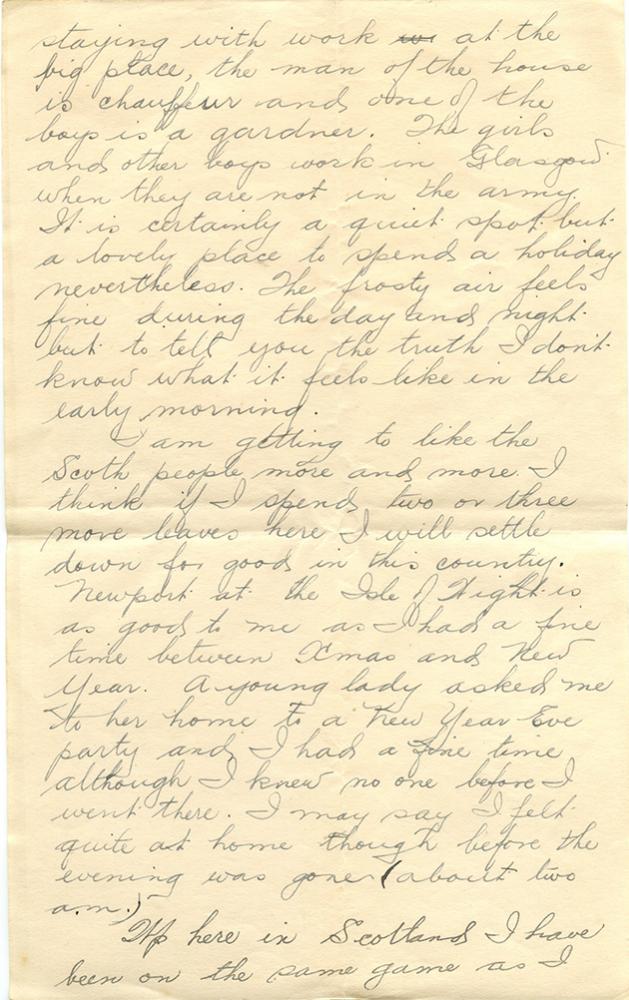 staying with work at the
big place, the man of the house
is chauffeur and one of the
boys is a gardner. The girls
and other boys work in Glasgow
when they are not in the army.
It is certainly a quiet spot but
a lovely place to spend a holiday
nevertheless. The frosty air feels
fine during the day and night
but to tell you the truth I dont
know what it feels like in the
early morning.
I am getting to like the
Scoth people more and more. I
think if I spend two or three
more leaves here I will settle
down for good in this country.
Newport at the Isle of Wight is
as good to me as I had a fine
time between Xmas and New
Year. A young lady asked me
to her home to a New Year Eve
party and I had a fine time
although I knew no one before I
went there. I may say I felt
quite at home though before the
evening was gone (about two
a.m.)
Up here in Scotland I have
been on the same game as I